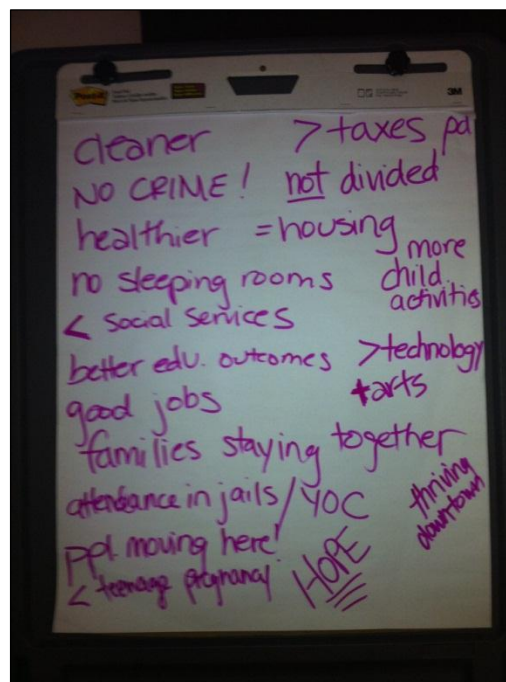 Post-it
3M
cleaner > taxes pd
NO CRIME! not divided
healthier = housing
no sleeping rooms
more
child
activities
< social services
better edu. outcomes
> technology
+arts
good jobs
families staying together
attendance in jails/YOC
thriving
downtown
ppl moving here!
< teenage pregnancy
HOPE